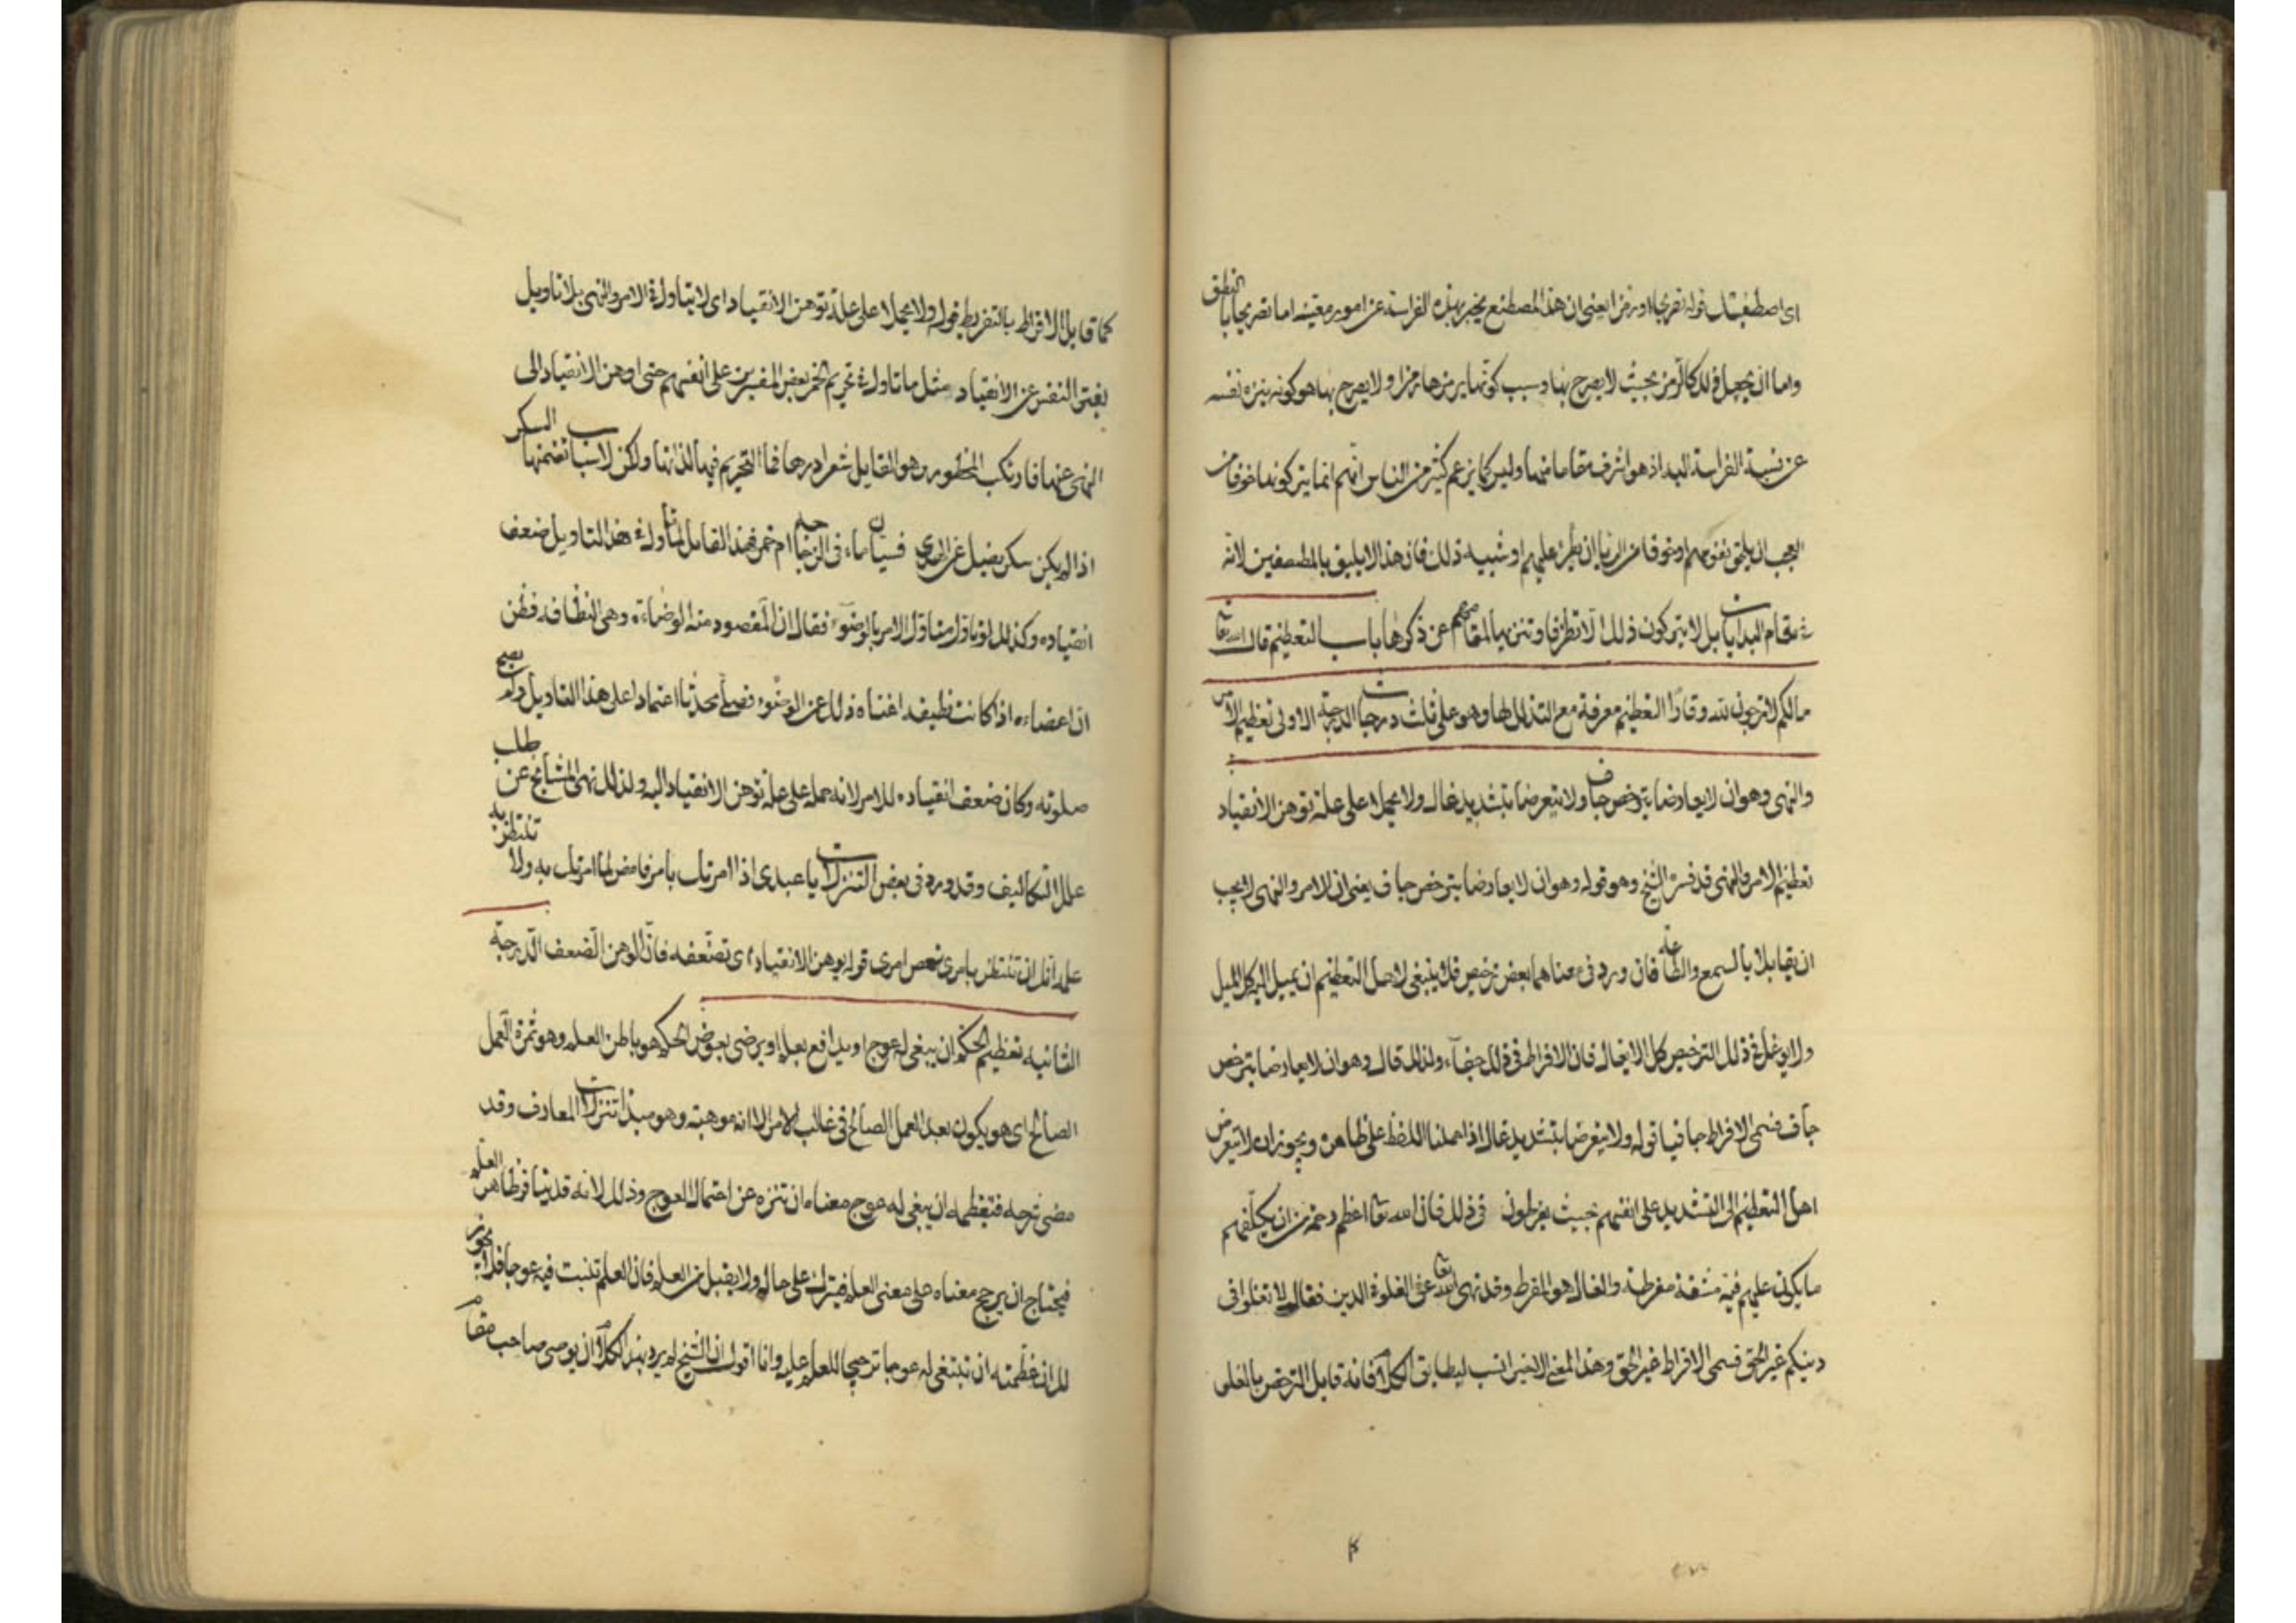 اى اصطفيتك قوله تصريحا او رمزا يعنى ان هذا المصطنع يخبر بهذه الفراسة عن امور معينه اما تصريحا بالنطق
واما ان يجعل ذلك كالرمز بحيث لا يصرح بها وسبب كونها يرمزها رمزا ولا يصرح بها هو كونه ينزه نفسه
عن نسبة الفراسة اليه اذ هو اشرف مقاما منها وليس كما يزعم كثير من الناس انهم انما يتركونها خوفا من
العجب ان يلحق نفوسهم او خوفا من الريا ان يطرء عليهم او شبيه ذلك فان هذا لا يليق بالمصطفين لانه
فى مقام البدايات بل لا يتركون ذلك الا تظرفا وتنزيها لمقامهم عن ذكرها باب التعظيم قال الله تعا
مالكم لا ترجون لله وقارا التعظيم معرفة مع التذلل لها وهو على ثلث درجات الدرجة الاولى تعظيم الامر
والنهى وهو ان لا يعارضا بترخص جاف ولا يتعرضا بتشديد غال ولا يحملا على علة توهن الانقياد
تعظيم الامر والنهى قد فسره الشيخ وهو قوله وهو ان لا يعارضا بترخص جاف يعنى ان الامر والنهى يجب
ان يقابلا بالسمع والطاعة فان ورد فى معناهما بعض ترخيص فلا ينبغى لاهل التعظيم ان يميل اليه كل الميل
ولا يوغل فى ذلك الترخيص كل الايغال فان الافراط فى ذلك جفاء ولذلك قال وهو ان لا يعارضا بترخص
جاف فسمى الافراط جافيا قوله ولا يتعرضا بتشديد غال اذا حملنا اللفظ على ظاهره ويجوز ان لا يتعرض
اهل التعظيم الى التشديد على انفسهم بحيث يفرطون فى ذلك فان الله تعا اعظم رحمة من ان يكلفهم
ما يكون عليهم فيه مشقة مفرطة والغال هو المفرط وقد نهى الله تعا عن الغلو فى الدين فقال لا تغلوا فى
دينكم غير الحق فسمى الافراط غير الحق وهذا المعنى الاخير انسب ليطابق الكلام فانه قابل الترخص بالغلو
كما قابل الافراط بالتفريط قوله ولا يحملا على علة توهن الانقياد اى لا يتاول فى الامر والنهى بلا تاويل
يفتر النفس عن الانقياد مثل ما تاول فى تحريم الخمر بعض المفسرين على انفسهم حتى اوهن الانقياد الى
النهى عنها فارتكب المحظور وهو القايل شعر ادرها فما التحريم فيها لذاتها ولكن لاسباب تضمنها السكر
اذا لم يكن سكر يضل عن الهدى فسيان ماء فى الزجاجة ام خمر فهذا القايل لما تاول فى هذا التاويل ضعف
انقياده وكذلك لو تاول متاول الامر بالوضوء فقال ان المقصود منه الوضاءة وهى النظافه فظن
ان اعضاءه اذا كانت نظيفه اغناه ذلك عن الوضوء فصلى محدثا اعتمادا على هذا التاويل ولم تصح
صلوته وكان ضعف انقياده للامر لانه حمله على علة توهن الانقياد اليه ولذلك نهى المشايخ عن طلب
علل التكاليف وقد ورد فى بعض التنزلات يا عبدى اذا امرتك بامر فامض لما امرتك به ولا تنتظر به
علمه انك ان تنتظر بامرى تعص امرى قوله يوهن الانقياد اى تضعفه فان الوهن الضعف الدرجة
الثانيه تعظيم الحكم ان يبغى له عوج او يدافع بعلم او يرضى بعوض الحكم هو باطن العلم وهو ثمرة العمل
الصالح اى هو يكون بعد العمل الصالح فى غالب الامر الا انه موهبة وهو مبدأ تنزلات المعارف وقد
مضى شرحه فتعظيمه ان يبغى له عوج معناه ان تنزه عن احتمال العوج وذلك لانه قد ينافر ظاهر العلم
فيحتاج ان يرجح معناه على معنى العلم فيترك على حاله ولا يقبل من العلم فان العلم تنبت فيه عوجا فلا يجوز
لك ان عظمته ان تبتغى له عوجا ترجيحا للعلم عليه وانا اقول ان الشيخ لم يرد بهذا الكلام ان يوصى صاحب مقام